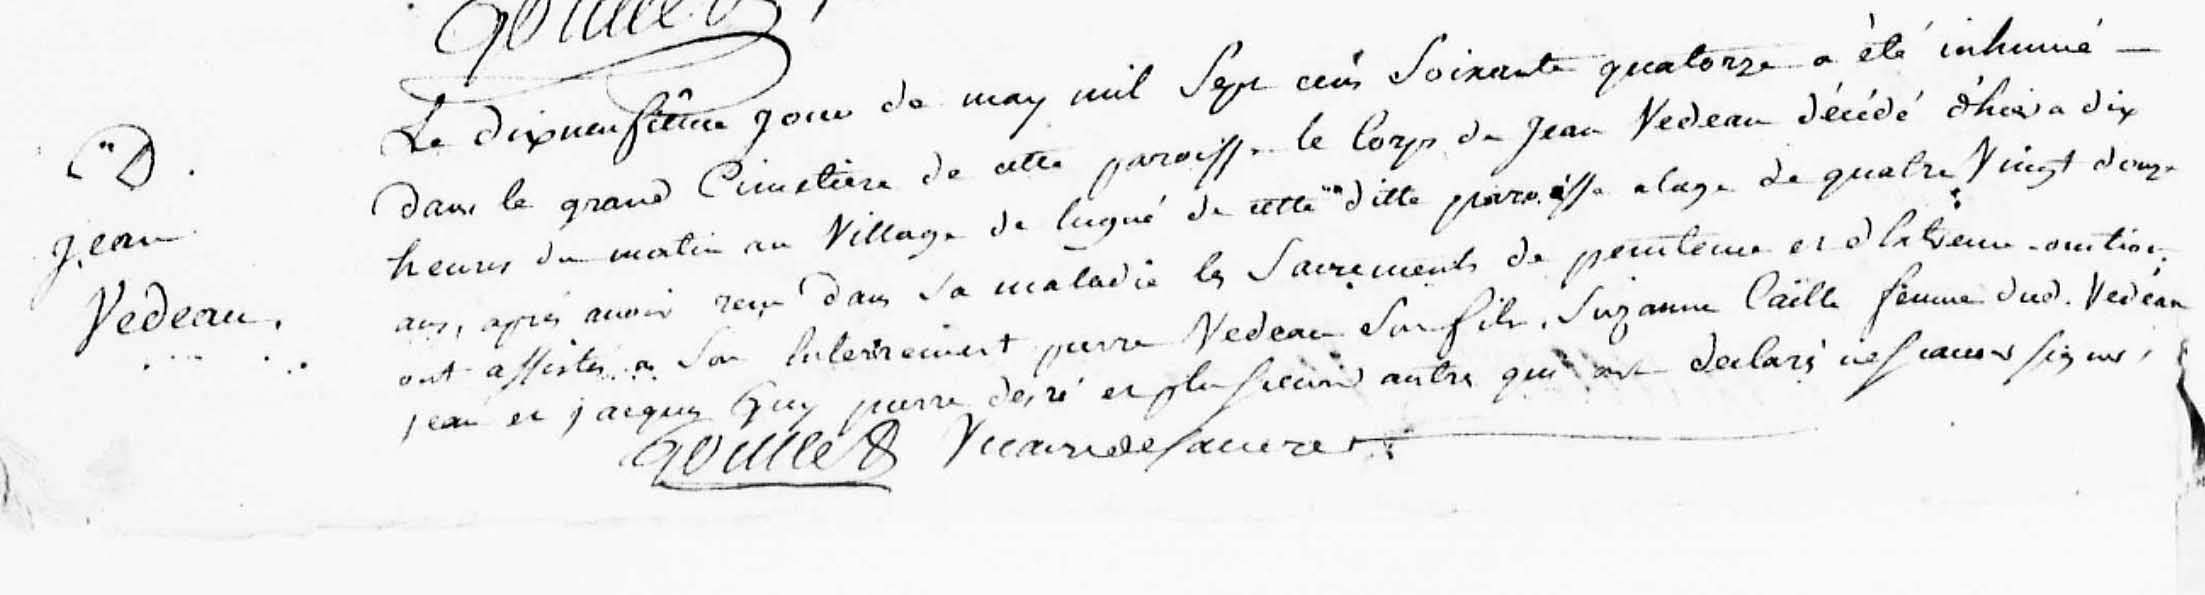 Le dixneufième jour de may mil Sept cens Soixante quatorze a été inhumé —
D.
dans le grand Cimetiere de cette paroisse le Corps de Jean Vedeau décédé d'hier a dix
jean
heures du matin au Village de lugné de cette ditte paroisse a lage de quatre Vingt douze
Vedeau.
ans, après avoir reçu dans sa maladie les Sacrements de penitence et d'Extreme-onction
ont assistés a Son Enterrement pierre Vedeau Son fils, Suzanne Caille femme dud. Vedeau
jean et jacques Guy pierre et plusieurs autres qui ont declaré ne scavoir signer,
Vicaire de